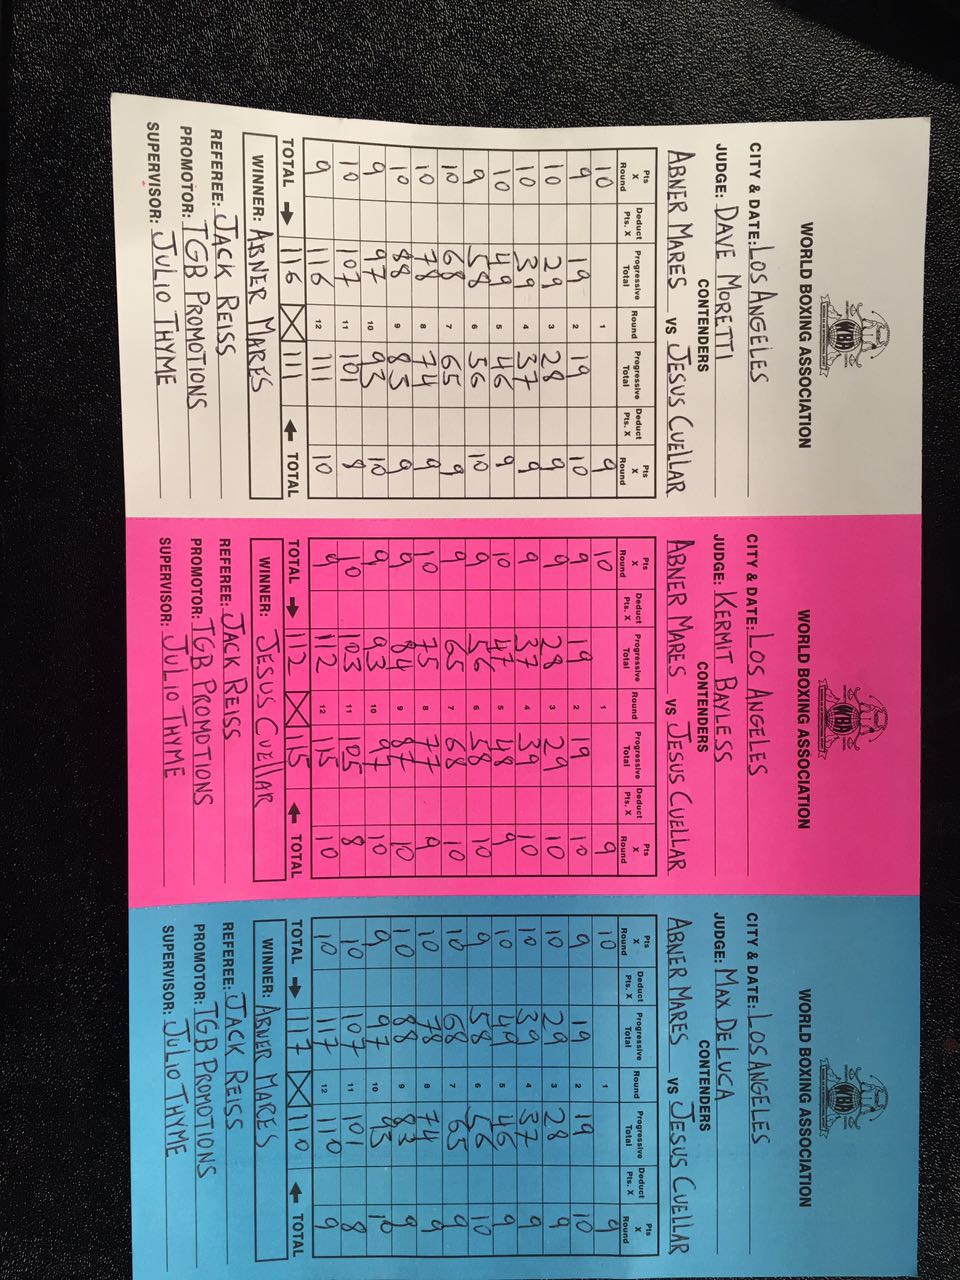 WBA
WORLD BOXING ASSOCIATION
CITY & DATE: LOS ANGELES
JUDGE: DAVE MORETTI
CONTENDERS
ABNER MARES VS JESUS CUELLAR
Pts X Round Deduct Pts. X Progressive Total Round Progressive Total Deduct Pts. X Pts X Round
10 1 9
9 19 2 19 10
10 29 3 28 9
10 39 4 37 9
10 49 5 46 9
9 58 6 56 10
10 68 7 65 9
10 78 8 74 9
10 88 9 83 9
9 97 10 93 10
10 107 11 101 8
9 116 12 111 10
TOTAL → 116 111 ← TOTAL
WINNER: ABNER MARES
REFEREE: JACK REISS
PROMOTOR: TGB PROMOTIONS
SUPERVISOR: JULIO THYME
WBA
WORLD BOXING ASSOCIATION
CITY & DATE: LOS ANGELES
JUDGE: KERMIT BAYLESS
CONTENDERS
ABNER MARES VS JESUS CUELLAR
Pts X Round Deduct Pts. X Progressive Total Round Progressive Total Deduct Pts. X Pts X Round
10 1 9
9 19 2 19 10
9 28 3 29 10
9 37 4 39 10
10 47 5 48 9
9 56 6 58 10
9 65 7 68 10
10 75 8 77 9
9 84 9 87 10
9 93 10 97 10
10 103 11 105 8
9 112 12 115 10
TOTAL → 112 115 ← TOTAL
WINNER: JESUS CUELLAR
REFEREE: JACK REISS
PROMOTOR: TGB PROMOTIONS
SUPERVISOR: JULIO THYME
WBA
WORLD BOXING ASSOCIATION
CITY & DATE: LOS ANGELES
JUDGE: MAX DE LUCA
CONTENDERS
ABNER MARES VS JESUS CUELLAR
Pts X Round Deduct Pts. X Progressive Total Round Progressive Total Deduct Pts. X Pts X Round
10 1 9
9 19 2 19 10
10 29 3 28 9
10 39 4 37 9
10 49 5 46 9
9 58 6 56 10
10 68 7 65 9
10 78 8 74 9
10 88 9 83 9
9 97 10 93 10
10 107 11 101 8
10 117 12 110 9
TOTAL → 117 110 ← TOTAL
WINNER: ABNER MARES
REFEREE: JACK REISS
PROMOTOR: TGB PROMOTIONS
SUPERVISOR: JULIO THYME